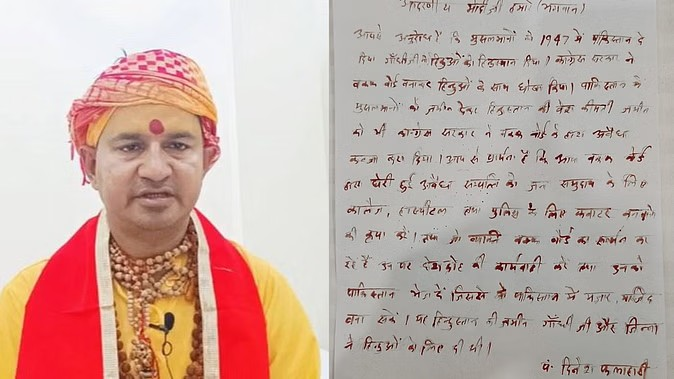 आदरणीय मोदी जी हमारे (भगवान)
आपसे अनुरोध है कि मुसलमानों को 1947 में पाकिस्तान दे
दिया गाँधीजी ने हिन्दुओं को हिन्दुस्थान दिया। कांग्रेस सरकार ने
वक्फ बोर्ड बनाकर हिन्दुओं के साथ धोखा किया। पाकिस्तान में
मुसलमानों को जमीन देकर हिन्दुस्तान की बेश कीमती जमीन
को भी कांग्रेस सरकार ने वक्फ बोर्ड के द्वारा अवैध
कब्जा करा दिया। आप से प्रार्थना है कि आप वक्फ बोर्ड
द्वारा घेरी हुई अवैध सम्पत्ति को जन समुदाय के लिए
कालेज, हास्पीटल तथा पुलिस के लिए क्वाटर बनवाने
की कृपा करें। तथा जो व्यक्ति वक्फ बोर्ड का समर्थन कर
रहे हैं उन पर देशद्रोह की कार्यवाही करें तथा उनको
पाकिस्तान भेज दें जिससे वो पाकिस्तान में मजार, मस्जिद
बना सकें। यह हिन्दुस्तान की जमीन गाँधी जी और जिन्ना
ने हिन्दुओं के लिए दी थी।
पं. दिनेश फलाहारी